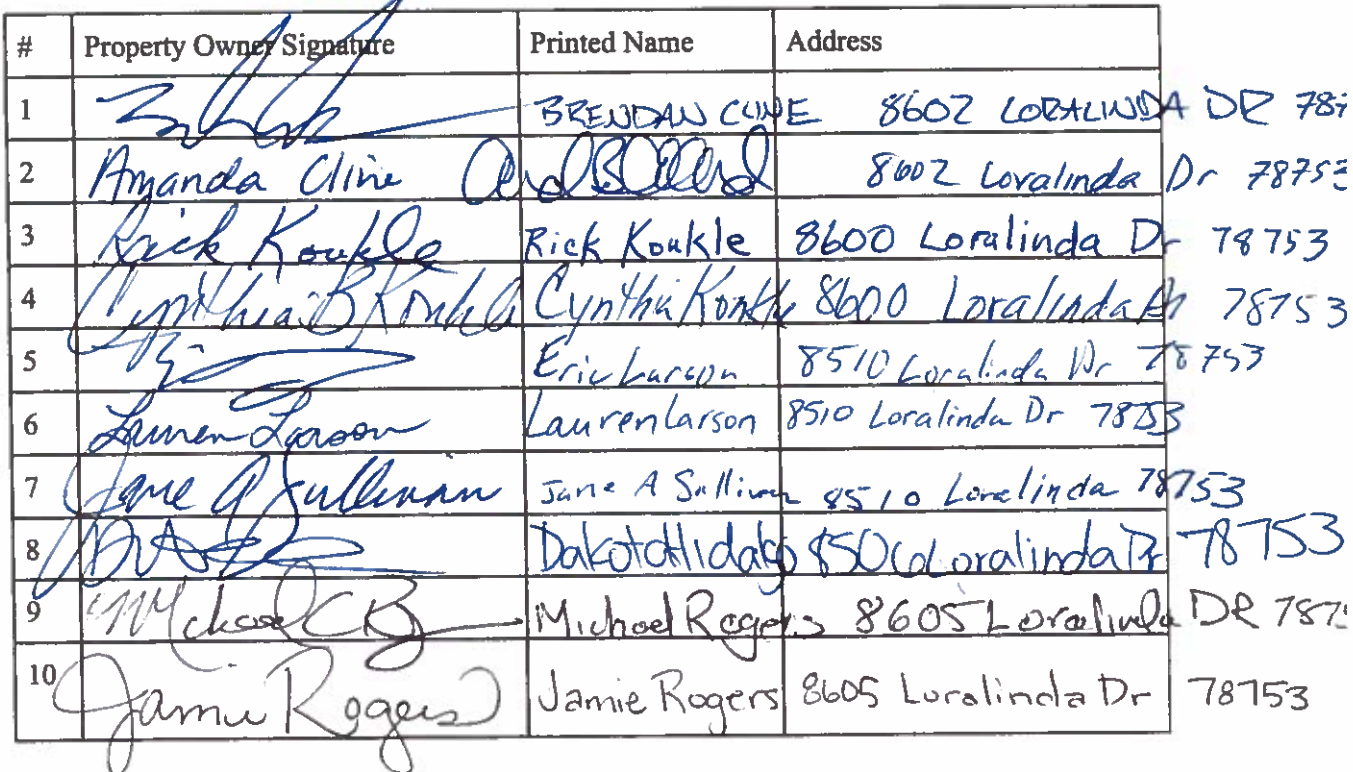 # Property Owner Signature Printed Name Address
1 BRENDAN CLINE 8602 LORALINDA DR 787
2 Amanda Cline 8602 Loralinda Dr 78753
3 Rick Konkle Rick Konkle 8600 Loralinda Dr 78753
4 Cynthia B Konkle Cynthia Konkle 8600 Loralinda Dr 78753
5 Eric Larson 8510 Loralinda Dr 78753
6 Lauren Larson Lauren Larson 8510 Loralinda Dr 78753
7 Jane A Sullivan Jane A Sullivan 8510 Loralinda 78753
8 Dakota Hidalgo 8506 Loralinda Dr 78753
9 Michael Rogers 8605 Loralinda DR 787
10 Jamie Rogers Jamie Rogers 8605 Loralinda Dr 78753